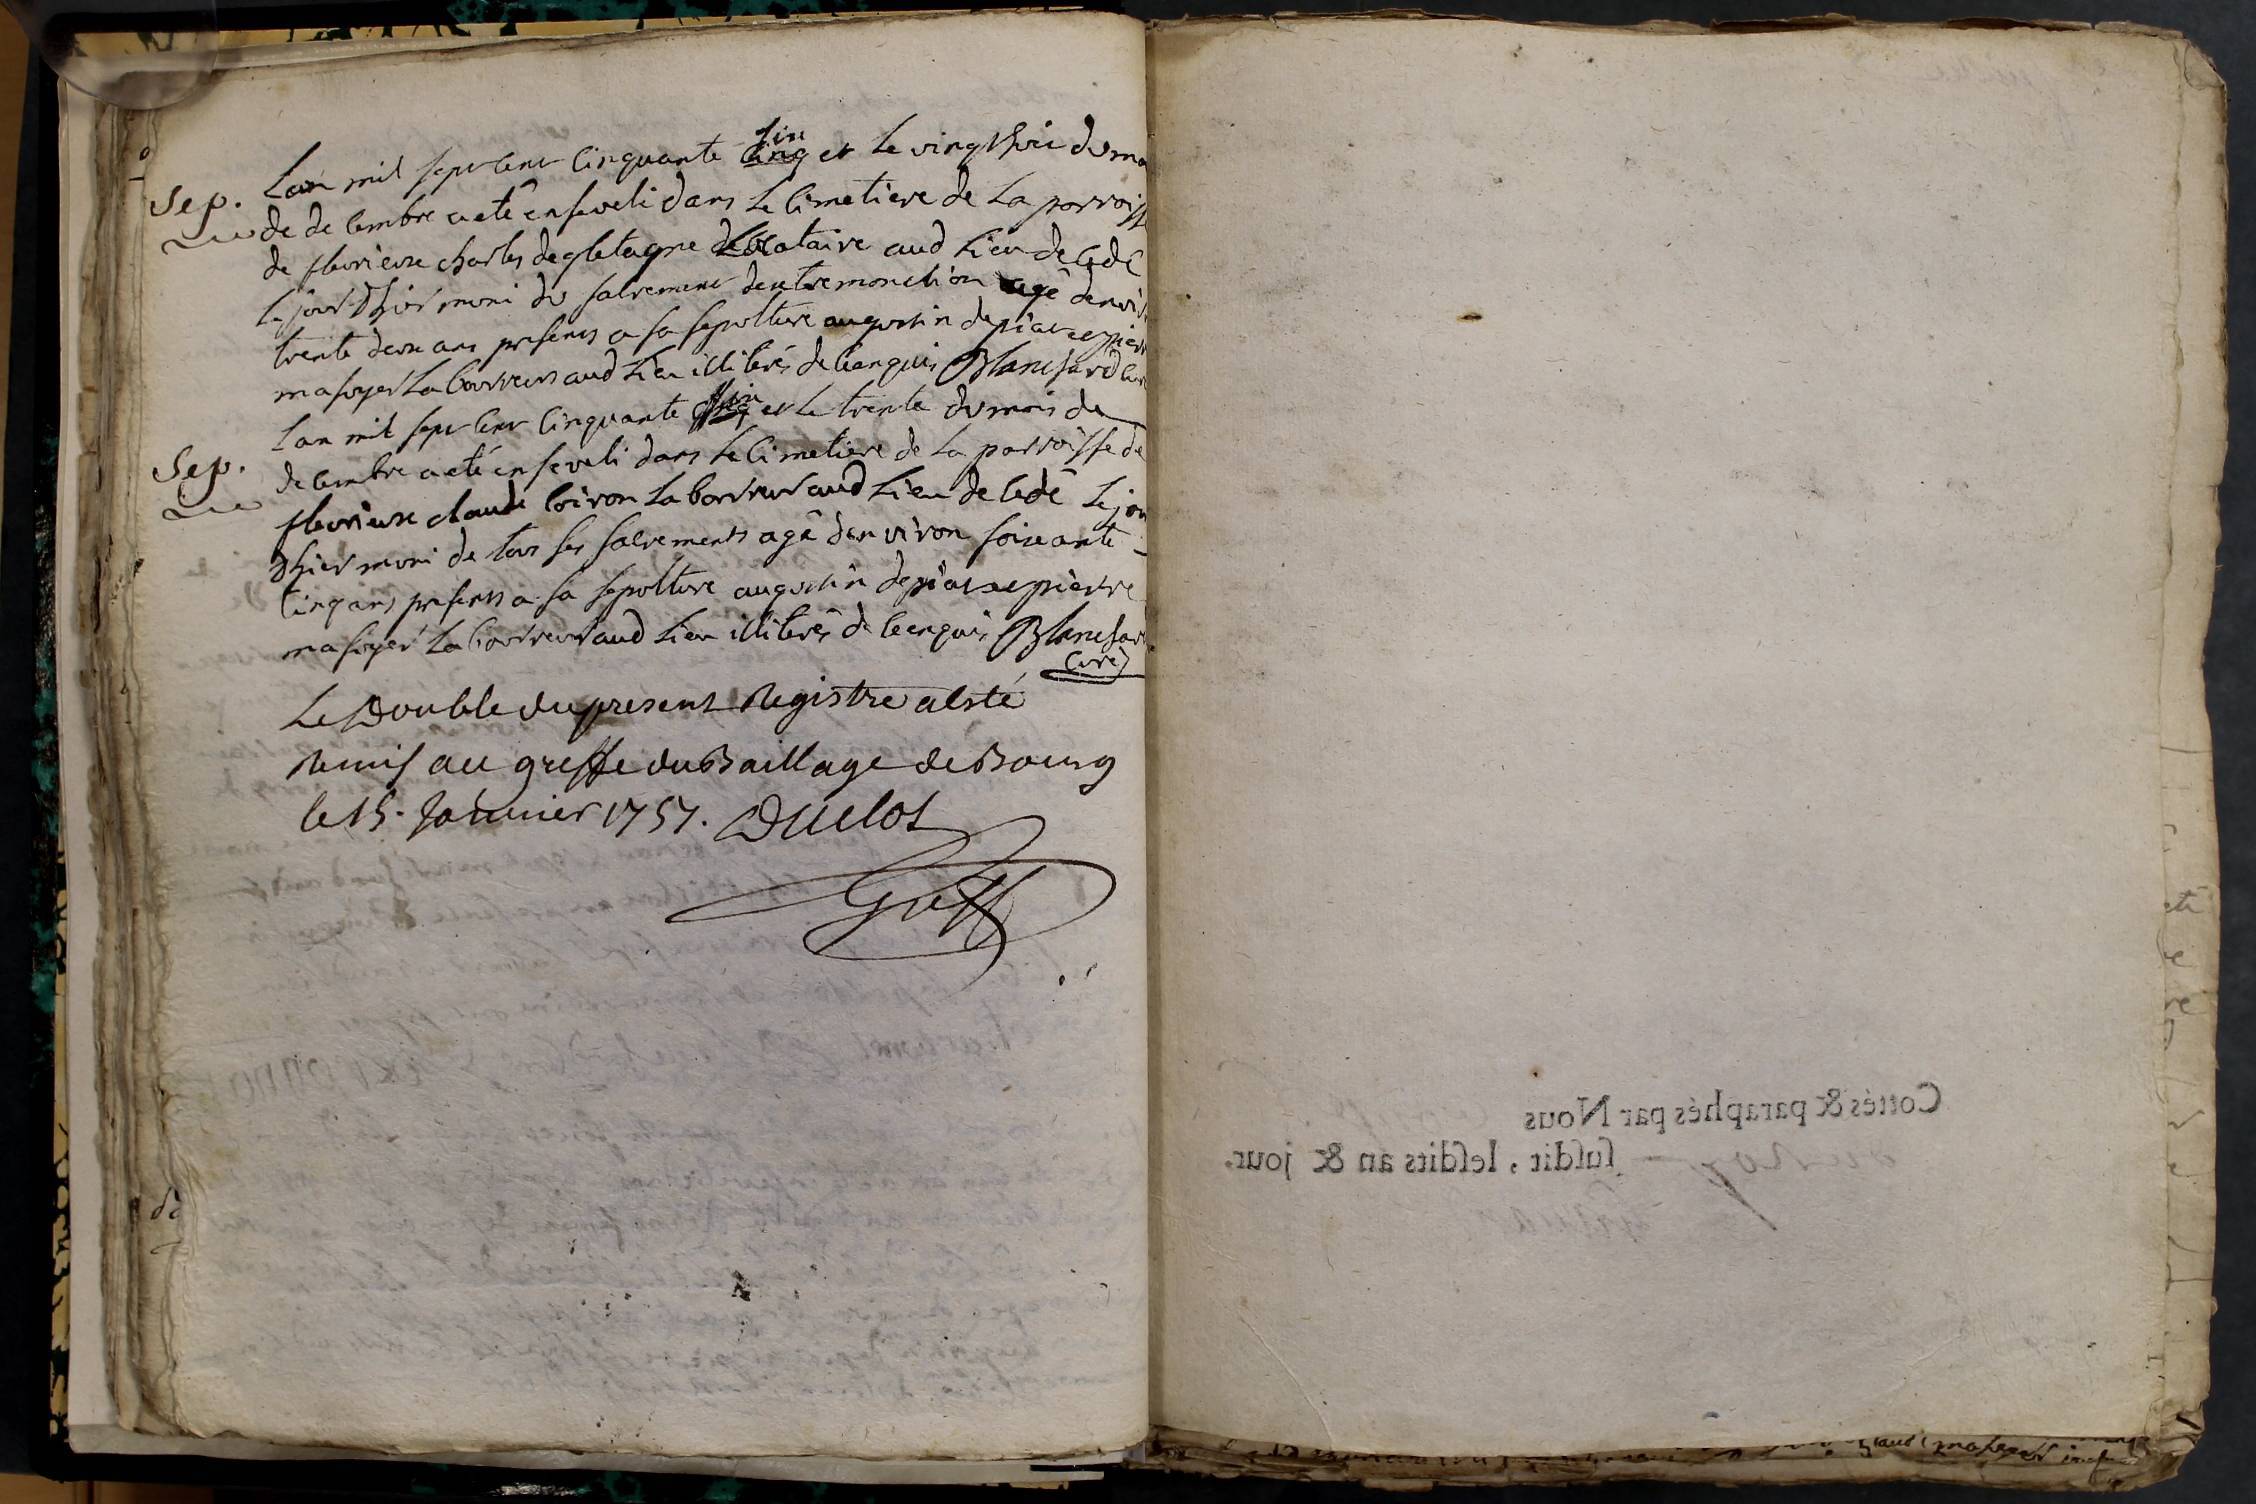 Sep.
Lan mil sept cent Cinquante six et le vingt huit du mo
de decembre a eté enseveli dans le Cimetiere de La parroisse
de fleurieux charles degletagne Locataire aud Lieu decedé
le jour d'hier muni du sacrement dextremonction agé denvi
trente deux ans presents a sa sepolture augustin depiar et pierre
masoyer Laboureurs aud Lieu illiterés de ce enquis Blanchard Curé
Sep.
Lan mil sept cent Cinquante six et le trente du mois de
decembre a eté enseveli dans le Cimetiere de La parroisse de
fleurieux claude Coiron Laboureur aud Lieu decedé Le jou
dhier muni de tous ses sacrements agé denviron soixante
Cinq ans presents a sa sepolture augustin depiar et pierre
masoyer Laboureurs aud Lieu illiterés de ce enquis Blanchard
Curé
Le Double du present Registre a esté
Remis au greffe du Baillage de Bourg
le 15. Janvier 1757. Duclot
Greff
Cottés & paraphés par Nous
du Roy susdit, lesdits an & jour.